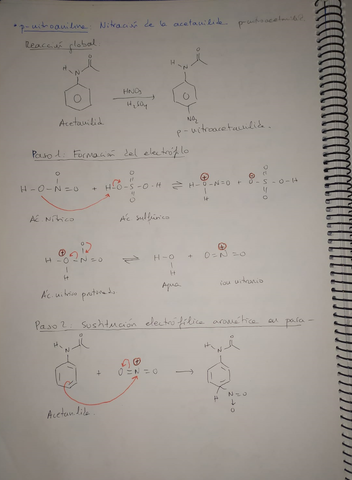 • p-nitroanilina. Nitración de la acetanilida. p-nitroacetanilida
Reacción global:
O
H
N
HNO₃
H₂SO₄
O
H
N
NO₂
Acetanilida
p-nitroacetanilida.
Paso 1: Formación del electrófilo
O
O
O
H-O-N=O + H-O-S-O-H ⇌ H-O-N=O + O-S-O-H
⊕
⊖
O
H
O
Ác Nítrico
Ác sulfúrico
⊕
O
H-O-N=O ⇌ H-O + O=N=O
H
H
⊕
Ác nítrico protonado
Agua
ion nitronio
Paso 2: Sustitución electrófilica aromática en para-
O
H
N
+ O=N=O →
⊕
O
H
N
H
N=O
O
Acetanilida.